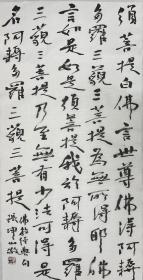 須菩提白佛言世尊佛得阿耨
多羅三藐三菩提為無所得耶佛
言如是如是須菩提我於阿耨多羅
三藐三菩提乃至無有少法可得是
名阿耨多羅三藐三菩提